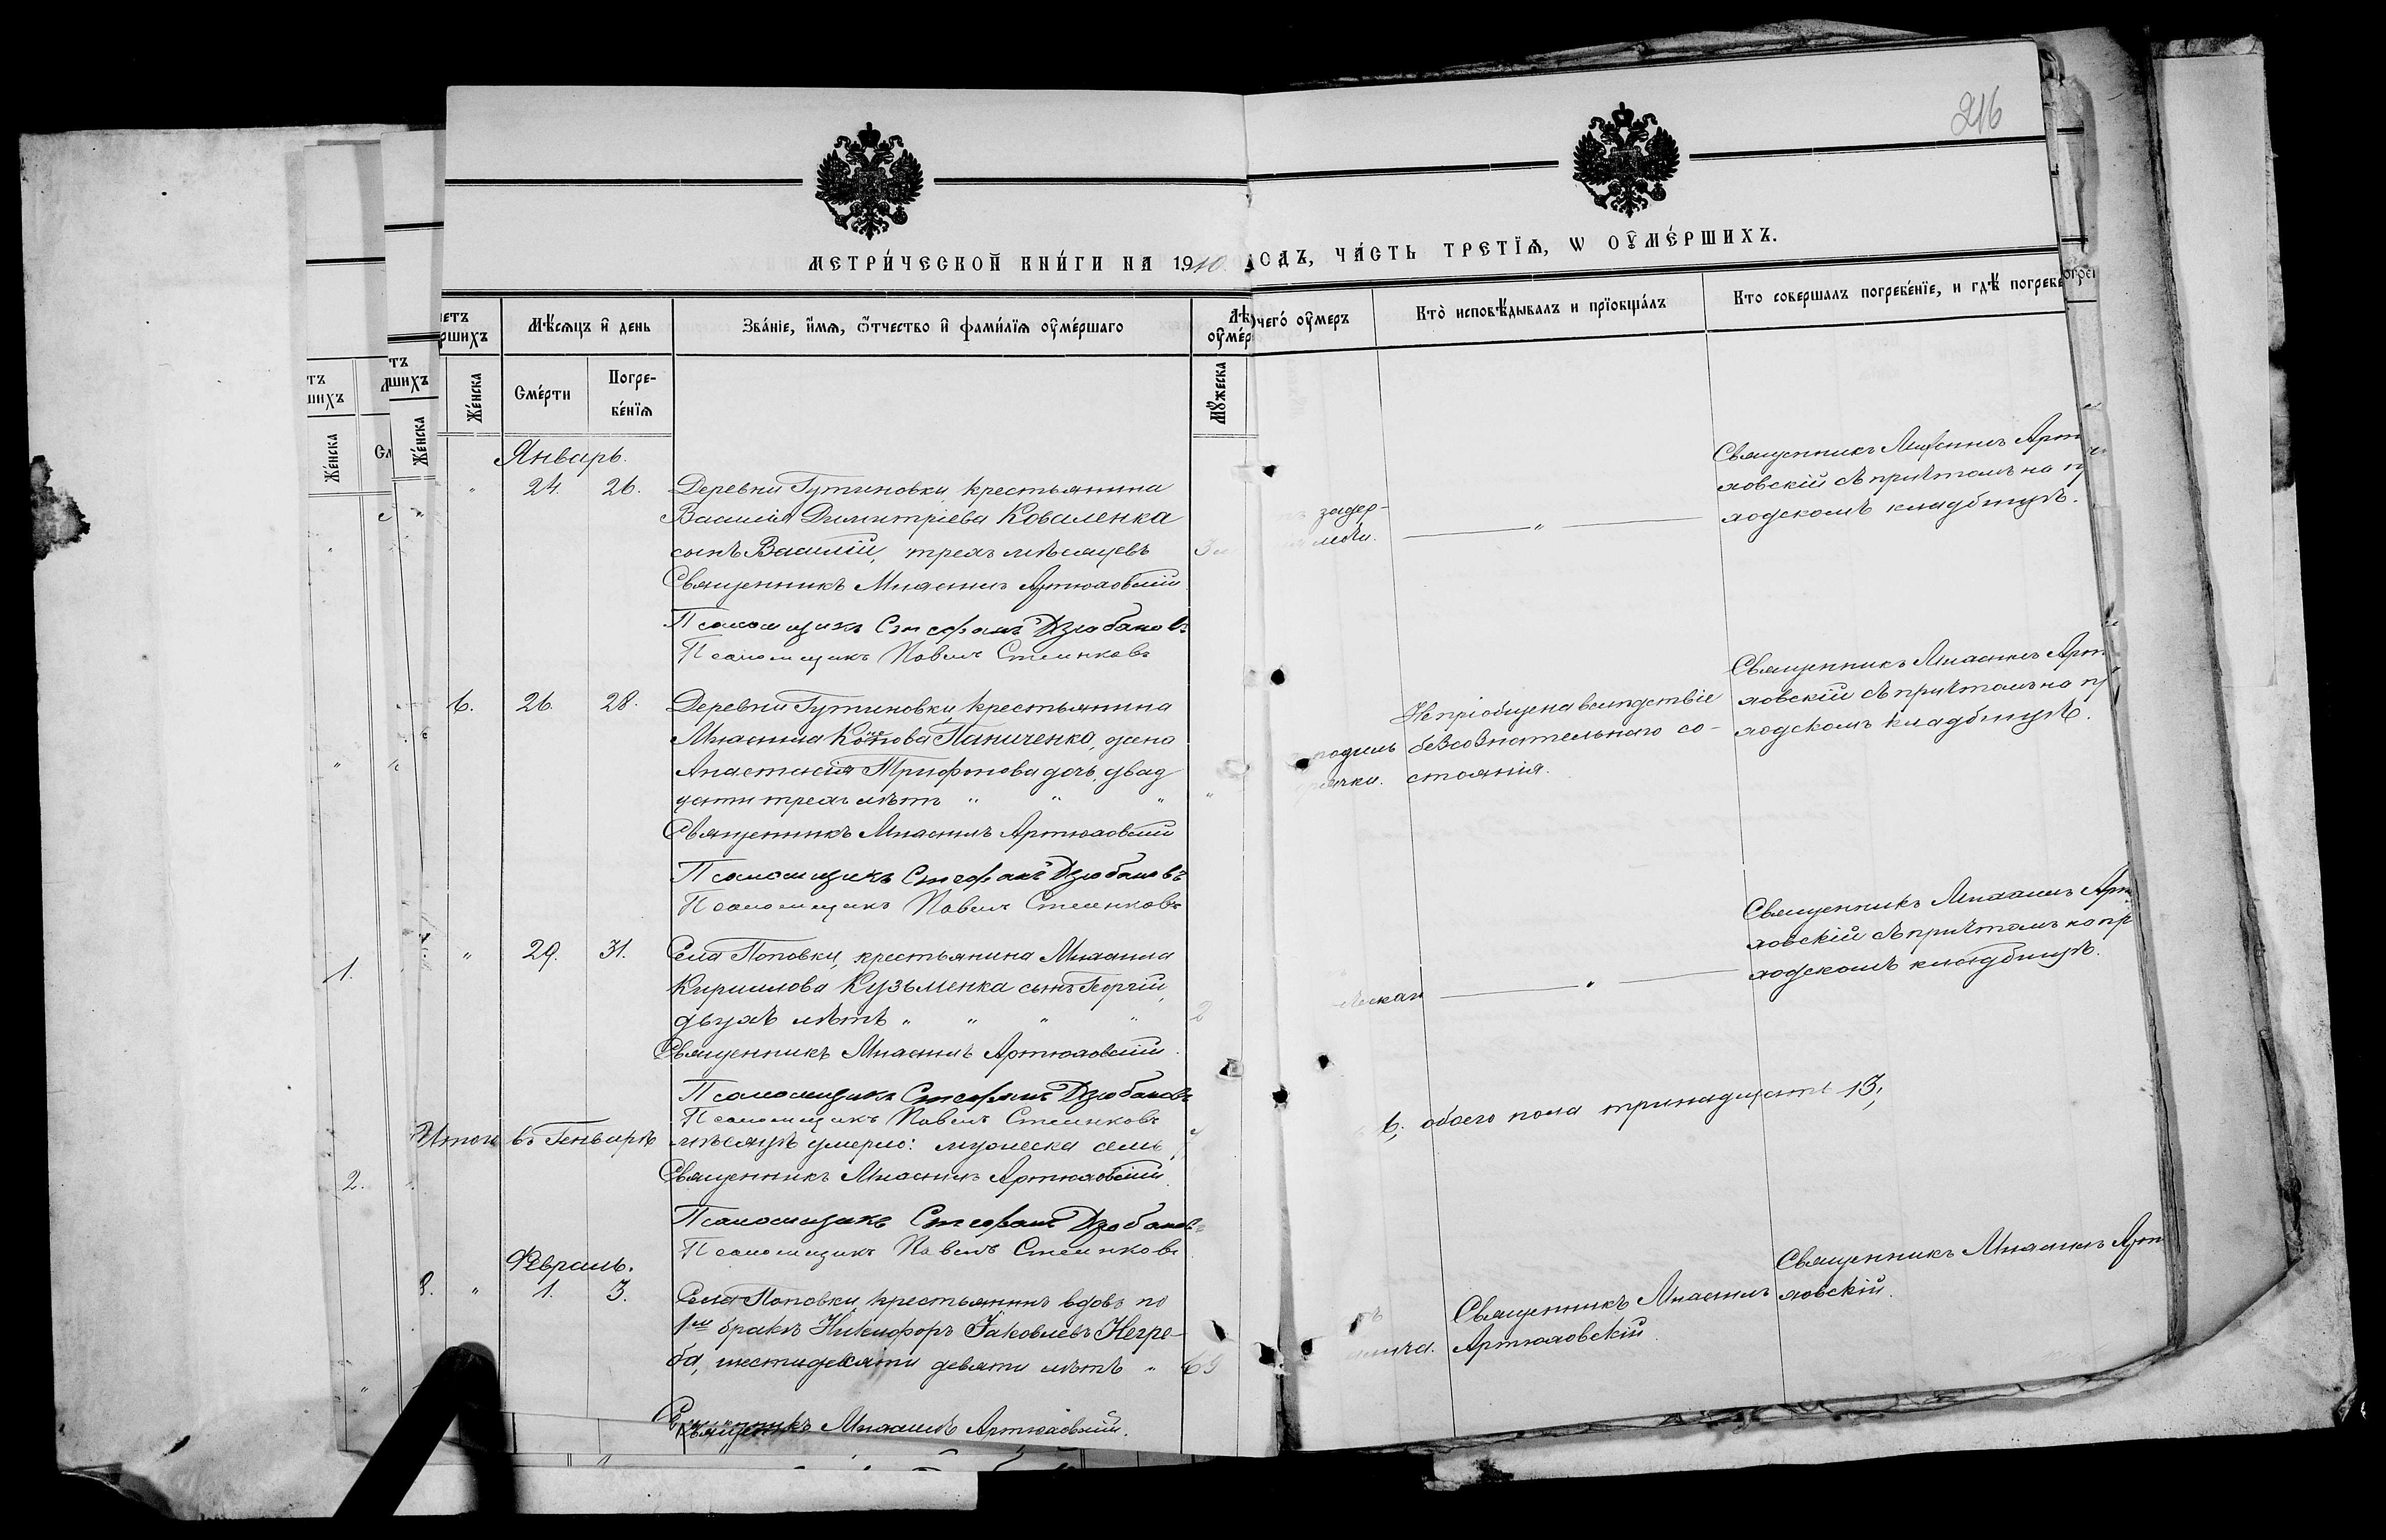 216
МЕТРИ́ЧЕСКОЙ КНИ́ГИ НА 1910 ГОДЪ, ЧА́СТЬ ТРЕТЇѦ, Ѡ ОУМЕ́РШИХЪ.
Мѣ́сѧцъ и҆ день
Зва́нїе, и҆́мѧ, ѻ҆́тчество и҆ фами́лїѧ оуме́ршаго
чегѡ́ оу҆́меръ
Кто̀ исповѣ́дывалъ и прїобща́лъ
Кто совершалъ погребе́нїе, и гдѣ̀ погребе
Же́нска
Сме́рти
Погре-
бе́нїѧ
Мꙋ́жеска
Январь.
" 24. 26. Деревни Гутиновки крестьянина
Василія Димитріева Коваленка
сынъ Василій, трехъ мѣсяцевъ
Священникъ Михаилъ Артюховскій
Псаломщикъ Стефанъ Дзюбановъ
Псаломщикъ Павелъ
задер-
"
Священникъ Михаилъ Артю
ховскій съ причтомъ на п
ходскомъ кладбищѣ.
6. 26. 28. Деревни Гутиновки крестьянина
Михаила Паниченко, жена
Анастасія Трифонова дочь, двад
цати трехъ лѣтъ " " "
Священникъ Михаилъ Артюховскій
Псаломщикъ Стефанъ Дзюбановъ
Псаломщикъ Павелъ
родил
горячки.
Не пріобщена вслѣдствіе
безсознательнаго со-
стоянія.
Священникъ Михаилъ Арт
ховскій съ причтомъ на п
ходскомъ кладбищѣ.
" 29. 31. Села Поповки, крестьянина Михаила
Кириллова Кузьменка сынъ Георгій,
двухъ лѣтъ " " " " 2
Священникъ Михаилъ Артюховскій.
Псаломщикъ Стефанъ Дзюбановъ
Псаломщикъ Павелъ
"
Священникъ Михаилъ Арт
ховскій съ причтомъ на пр
ходскомъ кладбищѣ.
Итого въ Генварѣ мѣсяцѣ умерло: мужеска семь 7
6, обоего пола тринадцать 13,
Священникъ Михаилъ Артюховскій.
Псаломщикъ Стефанъ Дзюбановъ
Псаломщикъ Павелъ
Февраль.
8. " 1. 3. Села Поповки крестьянинъ вдовъ по
1мъ бракѣ Никифоръ Іаковлевъ Негре-
ба, шестидесяти девяти лѣтъ " 69
Священникъ Михаилъ Артюховскій.
Священникъ Михаилъ
Артюховскій.
Священникъ Михаилъ Арт
ховскій.
1.
2.